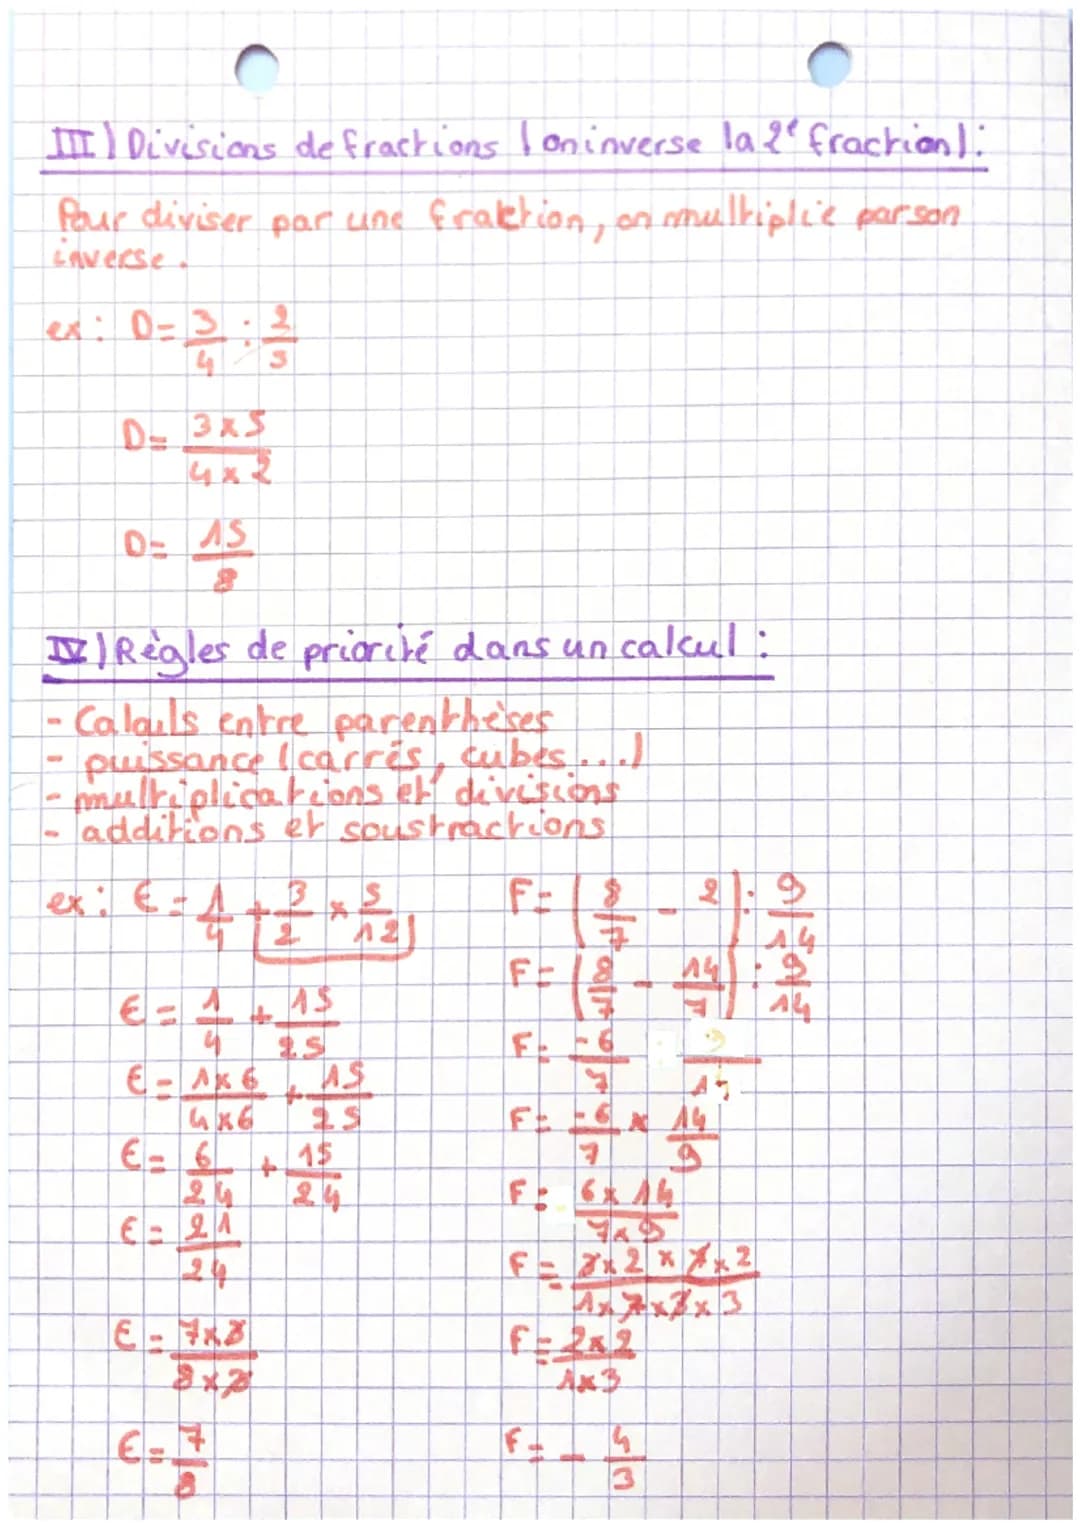 III) Divisions de fractions (on inverse la 2e fraction):
Pour diviser par une fraktion, on multiplie par son
inverse.
ex: D = 3/4 : 2/5
D = 3x5/4x2
D = 15/8
IV) Règles de priorité dans un calcul :
- Calculs entre parenthèses
- puissance (carrés, cubes...)
- multiplications et divisions
- additions et soustractions
ex: E = 1/4 + 3/2 x 5/12
E = 1/4 + 15/25
E = 1x6/4x6 + 15/25
E = 6/24 + 15/24
E = 21/24
E = 7x3/8x3
E = 7/8
F = (8/7 - 2) : 9/14
F = (8/7 - 14/7) : 9/14
F = -6/7 :
F = -6/7 x 14/9
F = 6x14/7x9
F = 3x2x7x2/1x7x3x3
F = 2x2/1x3
F = - 4/3